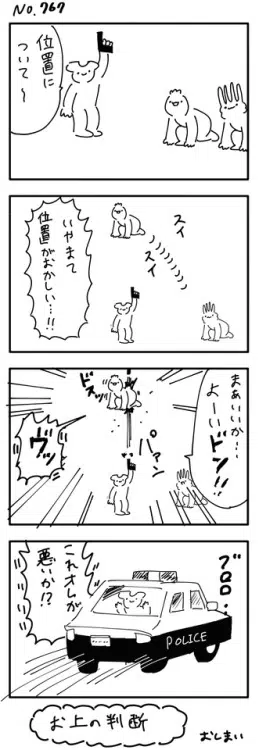 NO.767
位置に
ついて〜
スイ
スイ
いやまて
位置がおかしい…!!
まぁいいか…
よーいドン!!
パァン
ドスッ
ヴッ
ブロロ…
これオレが
悪いか!?
POLICE
お上の判断
おしまい